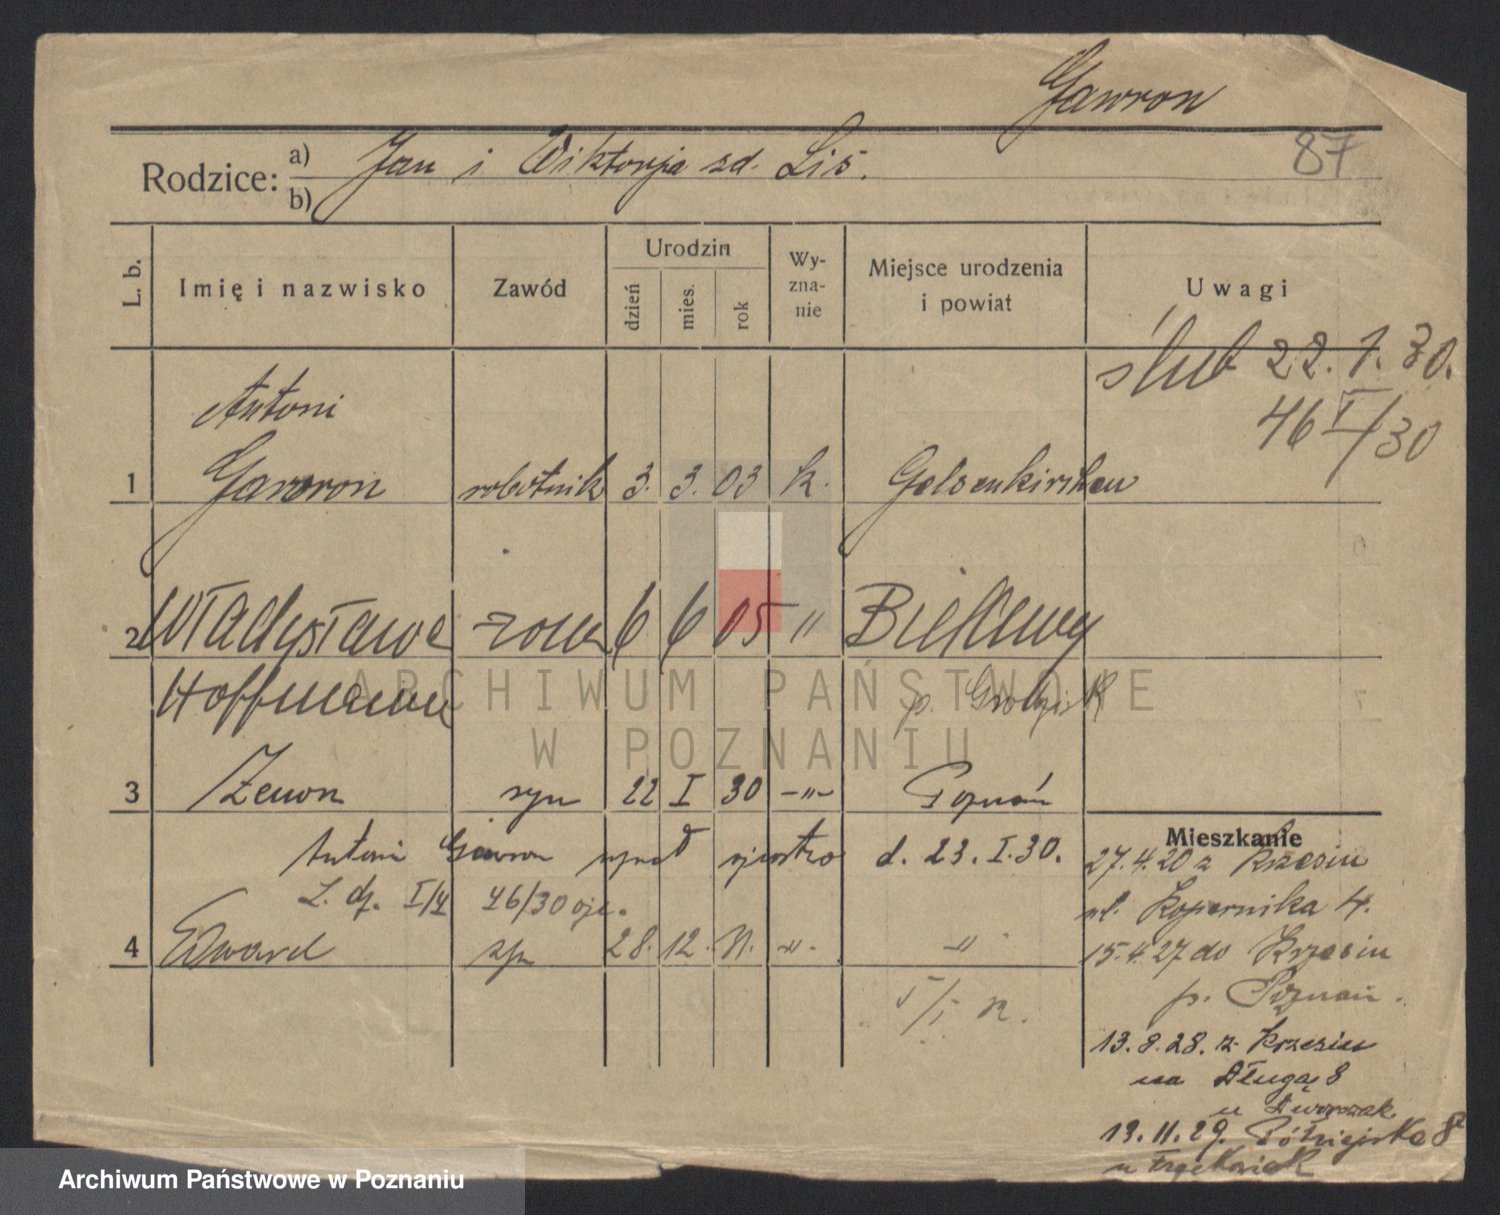 Gawron
87
Rodzice: a) Jan i Wiktorja zd. Lis.
b)
L. b. Imię i nazwisko Zawód Urodzin dzień mies. rok Wyznanie Miejsce urodzenia i powiat Uwagi
ślub 22.1.30.
46 I/30
Antoni
1 Gawron robotnik 3. 3. 03 k. Gelsenkirchen
2 Władysława żona 6 6 05 " Bielawy
Hoffmann p. Grodzisk
3 Zenon syn 22 I 30 -"- Poznań
Antoni Gawron d. 23.I.30.
46/30
4 Edward 28. 12. -"- -"-
Mieszkanie
27.4.20 z Krzesin
ul. Kopernika 4.
15.4.27 do Krzesin
p. Poznań.
13.8.28. z Krzesin
na Długą 8
u Dworzak
19.11.29. Półwiejska 8
u
ARCHIWUM PAŃSTWOWE
W POZNANIU
Archiwum Państwowe w Poznaniu